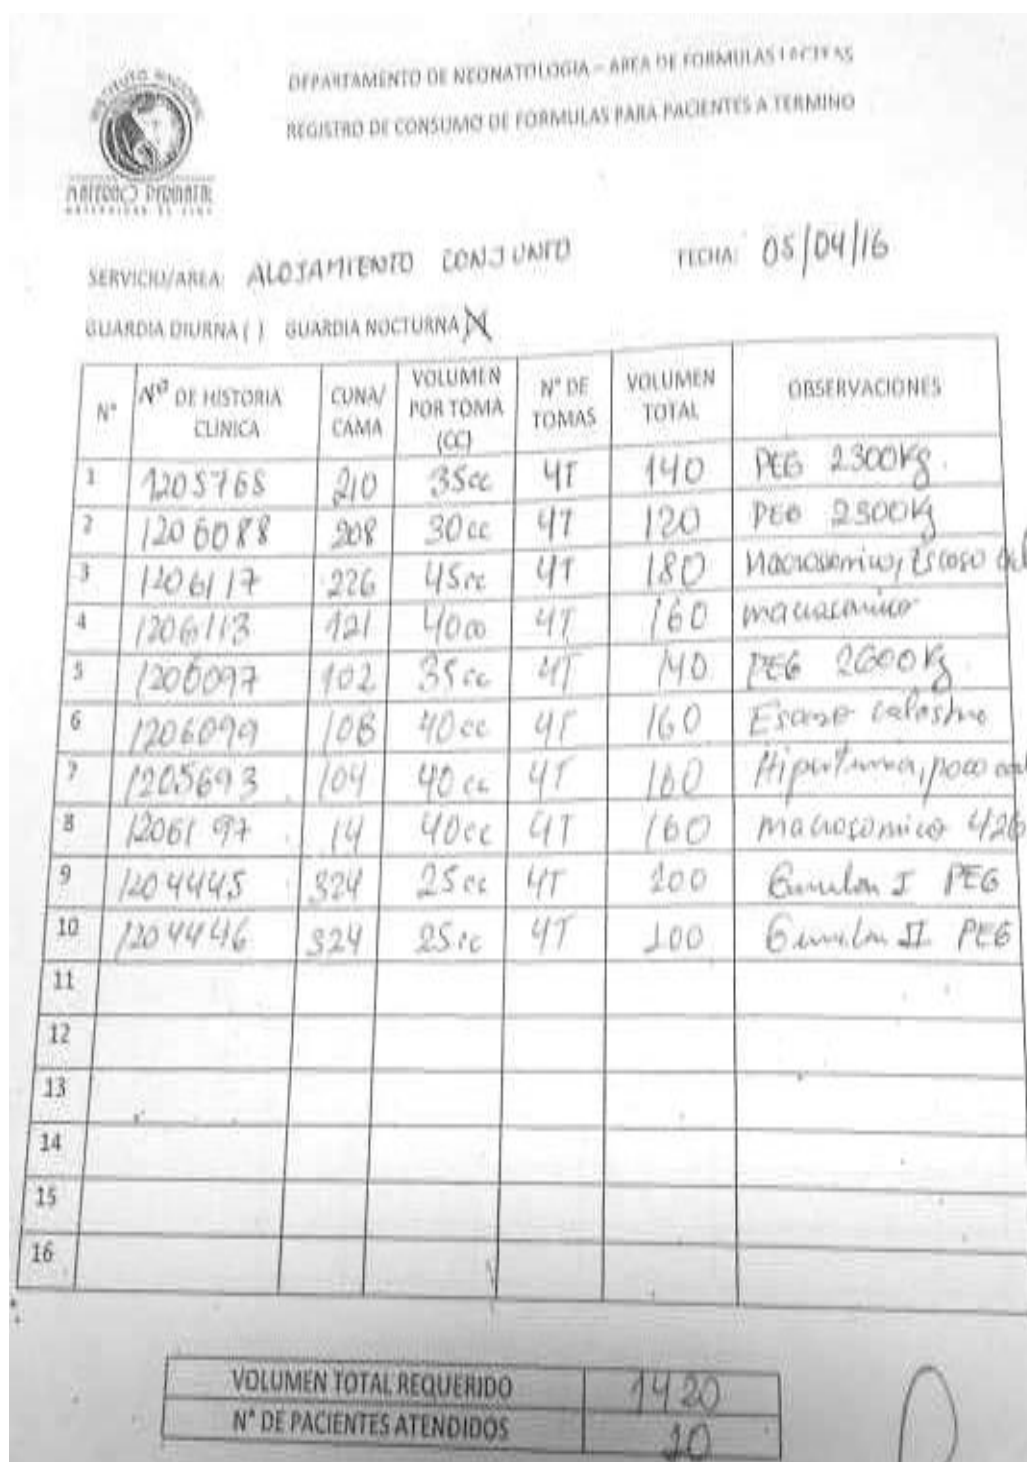 INSTITUTO NACIONAL
MATERNO PERINATAL
MATERNIDAD DE LIMA
DEPARTAMENTO DE NEONATOLOGIA – AREA DE FORMULAS LACTEAS
REGISTRO DE CONSUMO DE FORMULAS PARA PACIENTES A TERMINO
SERVICIO/AREA: ALOJAMIENTO CONJUNTO FECHA: 05/04/16
GUARDIA DIURNA ( ) GUARDIA NOCTURNA (X)
N° Nº DE HISTORIA CLINICA CUNA/ CAMA VOLUMEN POR TOMA (CC) N° DE TOMAS VOLUMEN TOTAL OBSERVACIONES
1 1205765 210 35cc 4T 140 PEG 2300Kg.
2 1206088 208 30cc 4T 120 PEG 2500Kg
3 1206117 226 45cc 4T 180 Macrosomico, Escaso
4 1206113 121 40cc 4T 160 macrosomico
5 1206097 102 35cc 4T 140 PEG 2600Kg
6 1206099 108 40cc 4T 160 Escaso calostro
7 1205693 104 40cc 4T 160 poco
8 1206197 14 40cc 4T 160 macrosomico 426
9 1204445 324 25cc 4T 100 Gemelar I PEG
10 1204446 324 25cc 4T 100 Gemelar II PEG
11
12
13
14
15
16
VOLUMEN TOTAL REQUERIDO 1420
N° DE PACIENTES ATENDIDOS 10